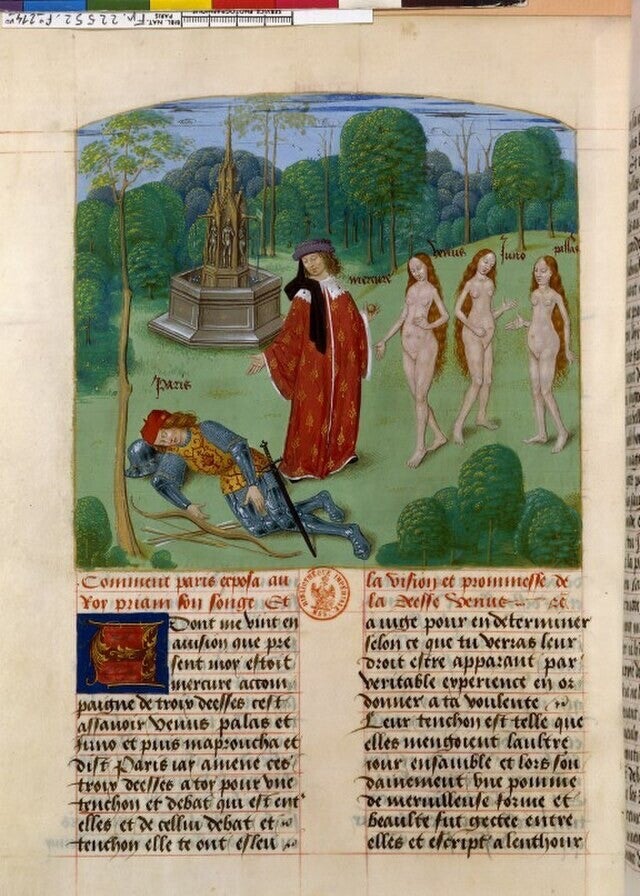 BIBL. NAT. PARIS Fr. 22552 f° 214v
SERVICE PHOTOGRAPHIQUE
venus
Juno
pallas
mercure
Paris
Comment paris exposa au
Roy priam son songe Et
la vision et prommesse de
la deesse venus
Dont me vint en
auision que pre
sent moy estoit
mercure accom
paigne de troix deesses cest
assauoir venus palas et
Juno et puis maproucha et
dist Paris iay amene ces
troix deesses a toy pour vne
tenchon et debat qui est ent
elles et de cellui debat et
tenchon elle te ont esleu
a iuge pour en determiner
selon ce que tu verras leur
droit estre apparant par
veritable experience en or
donner a ta voulente
Leur tenchon est telle que
elles mengoient laultre
iour ensamble et lors sou
dainement vne pomme
de merueilleuse forme et
beaulte fut gectee entre
elles et escript a lenthour